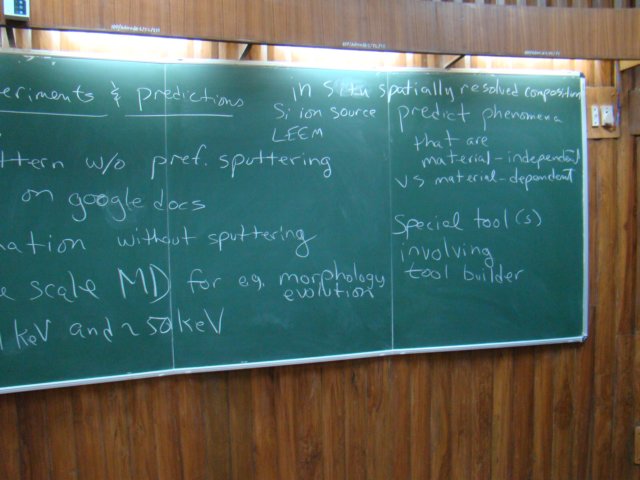 eriments & predictions
ttern w/o pref. sputtering
on google docs
nation without sputtering
e scale MD for e.g. morphology
evolution
1 keV and ~50 keV
in situ spatially resolved composition
Si ion source
LEEM
predict phenomena
that are
material-independent
vs material-dependent
Special tool(s)
involving
tool builder